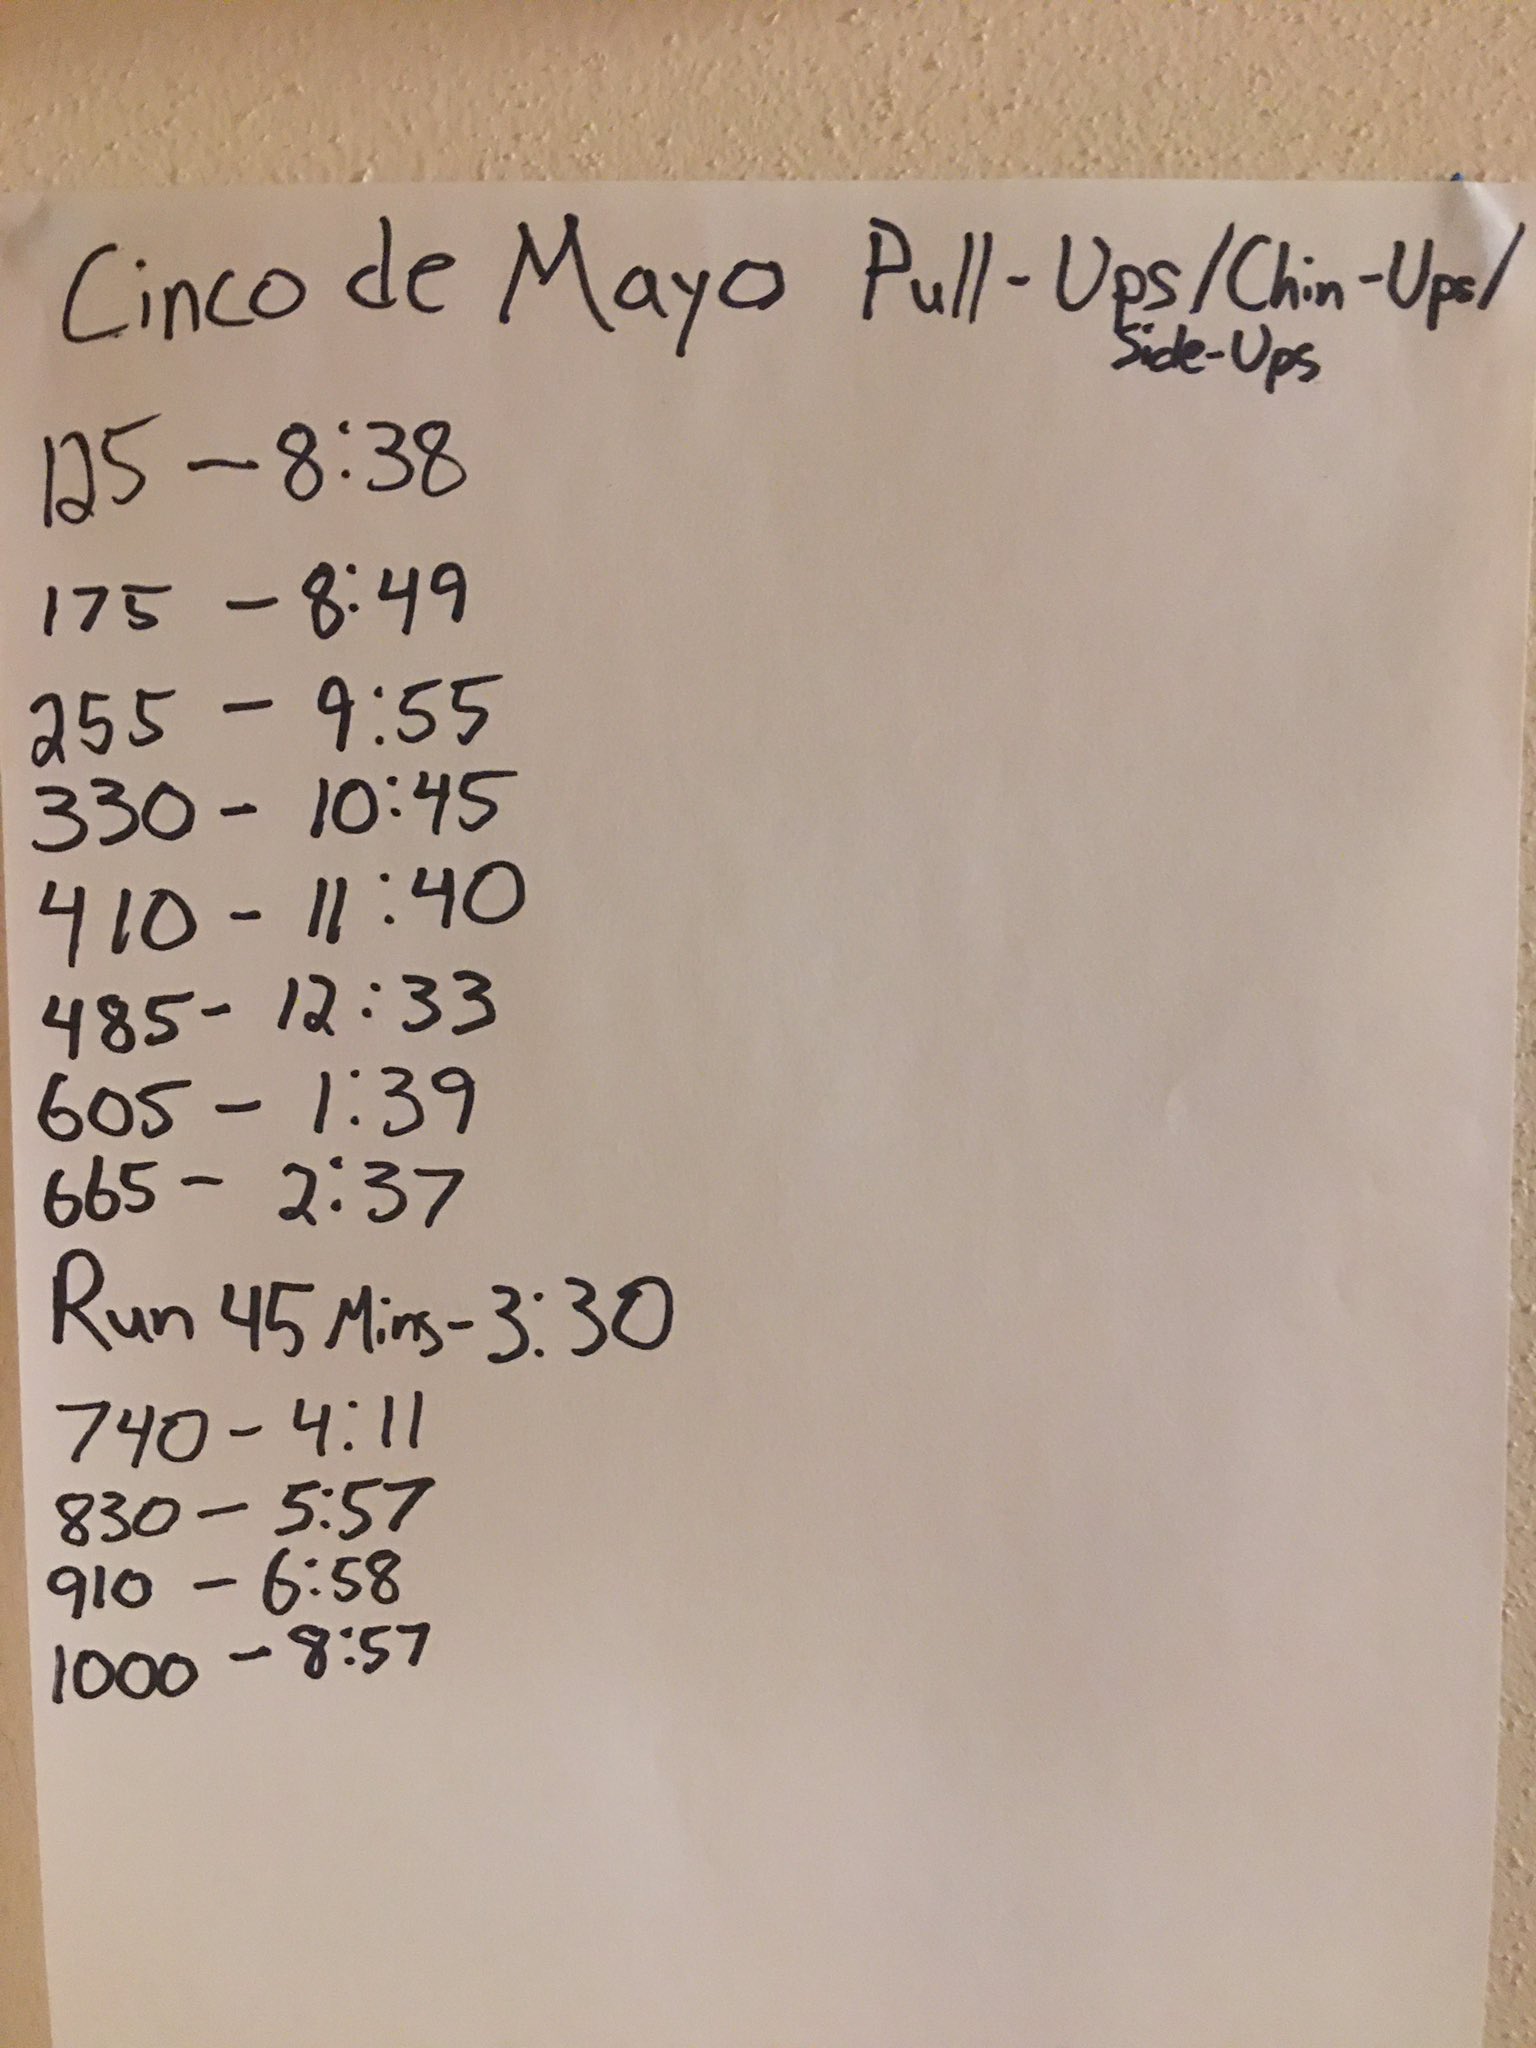 Cinco de Mayo Pull-Ups/Chin-Ups/
Side-Ups
125 - 8:38
175 - 8:49
255 - 9:55
330 - 10:45
410 - 11:40
485 - 12:33
605 - 1:39
665 - 2:37
Run 45 Mins - 3:30
740 - 4:11
830 - 5:57
910 - 6:58
1000 - 8:57